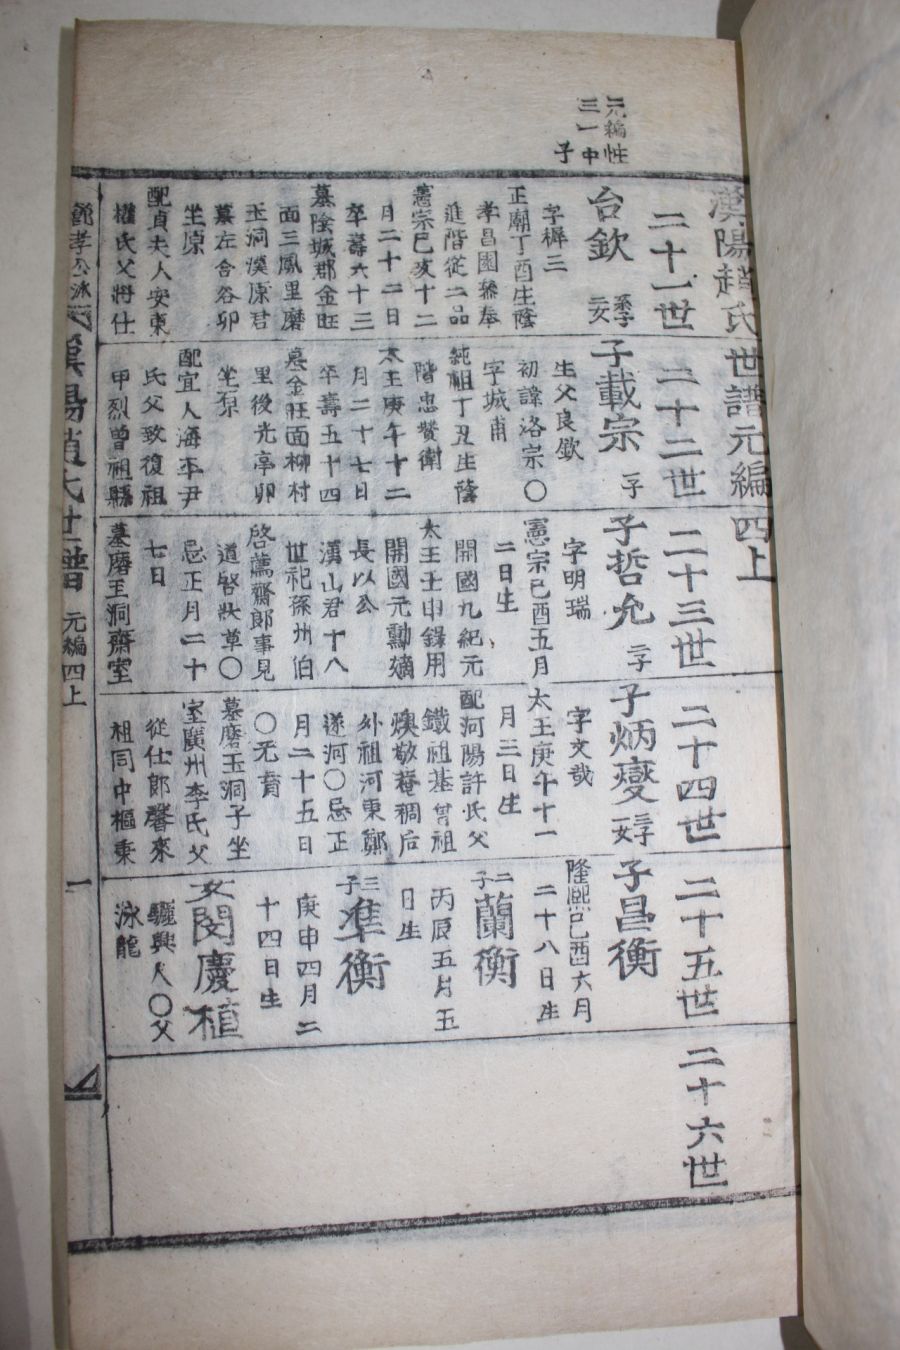 元編性
三一中
子
漢陽趙氏世譜元編四上
二十一世
台欽
字樨三
正廟丁酉生蔭
孝昌園參奉
進階從二品
憲宗己亥十二
月二十二日
卒壽六十三
墓陰城郡金旺
面三鳳里磨
玉洞漢原君
墓左合谷卯
坐原
配貞夫人安東
權氏父將仕
二十二世
子載宗
二子
生父良欽
初諱洛宗〇
字城甫
純祖丁丑生蔭
階忠贊衛
太王庚午十二
月二十七日
卒壽五十四
墓金旺面柳村
里後光亭卯
坐原
配宜人海平尹
氏父致復祖
甲烈曾祖縣
二十三世
子哲允
二子
字明瑞
憲宗己酉五月
二日生
開國九紀元
太王壬申錄用
開國元勳嫡
長以公
漢山君十八
世祀孫州伯
啓薦齋郎事見
道啓狀草〇
忌正月二十
七日
墓磨玉洞齋室
二十四世
子炳燮
三子
一女
字文哉
太王庚午十一
月三日生
配河陽許氏父
鐵祖基曾祖
燠敬菴稠后
外祖河東鄭
遂河〇忌正
月二十五日
〇无育
墓磨玉洞子坐
室廣州李氏父
從仕郎馨來
祖同中樞秉
二十五世
子昌衡
隆熙己酉六月
二十八日生
二子蘭衡
丙辰五月五
日生
三子準衡
庚申四月二
十四日生
女閔慶植
驪興人〇父
泳龍
二十六世
漢陽趙氏世譜 元編四上 一